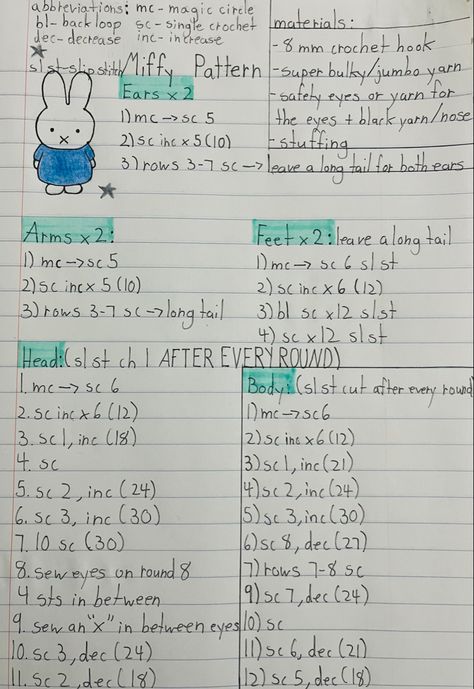 abbreviations: mc - magic circle
bl - back loop sc - single crochet
dec - decrease inc - increase
slst - slip stitch
materials:
- 8 mm crochet hook
- super bulky/jumbo yarn
- safety eyes or yarn for
the eyes + black yarn/nose
- stuffing
Miffy Pattern
Ears x 2
1) mc → sc 5
2) sc inc x 5 (10)
3) rows 3-7 sc → leave a long tail for both ears
Arms x 2:
1) mc → sc 5
2) sc inc x 5 (10)
3) rows 3-7 sc → long tail
Feet x 2: leave a long tail
1) mc → sc 6 slst
2) sc inc x 6 (12)
3) bl sc x12 slst
4) sc x12 slst
Head: (slst ch 1 AFTER EVERY ROUND)
1. mc → sc 6
2. sc inc x 6 (12)
3. sc 1, inc (18)
4. sc
5. sc 2, inc (24)
6. sc 3, inc (30)
7. 10 sc (30)
8. sew eyes on round 8
4 sts in between
9. sew an "x" in between eyes
10. sc 3, dec (24)
11. sc 2, dec (18)
Body: (slst cut after every round)
1) mc → sc6
2) sc inc x6 (12)
3) sc 1, inc (21)
4) sc 2, inc (24)
5) sc 3, inc (30)
6) sc 8, dec (27)
7) rows 7-8 sc
9) sc 7, dec (24)
10) sc
11) sc 6, dec (21)
12) sc 5, dec (18)